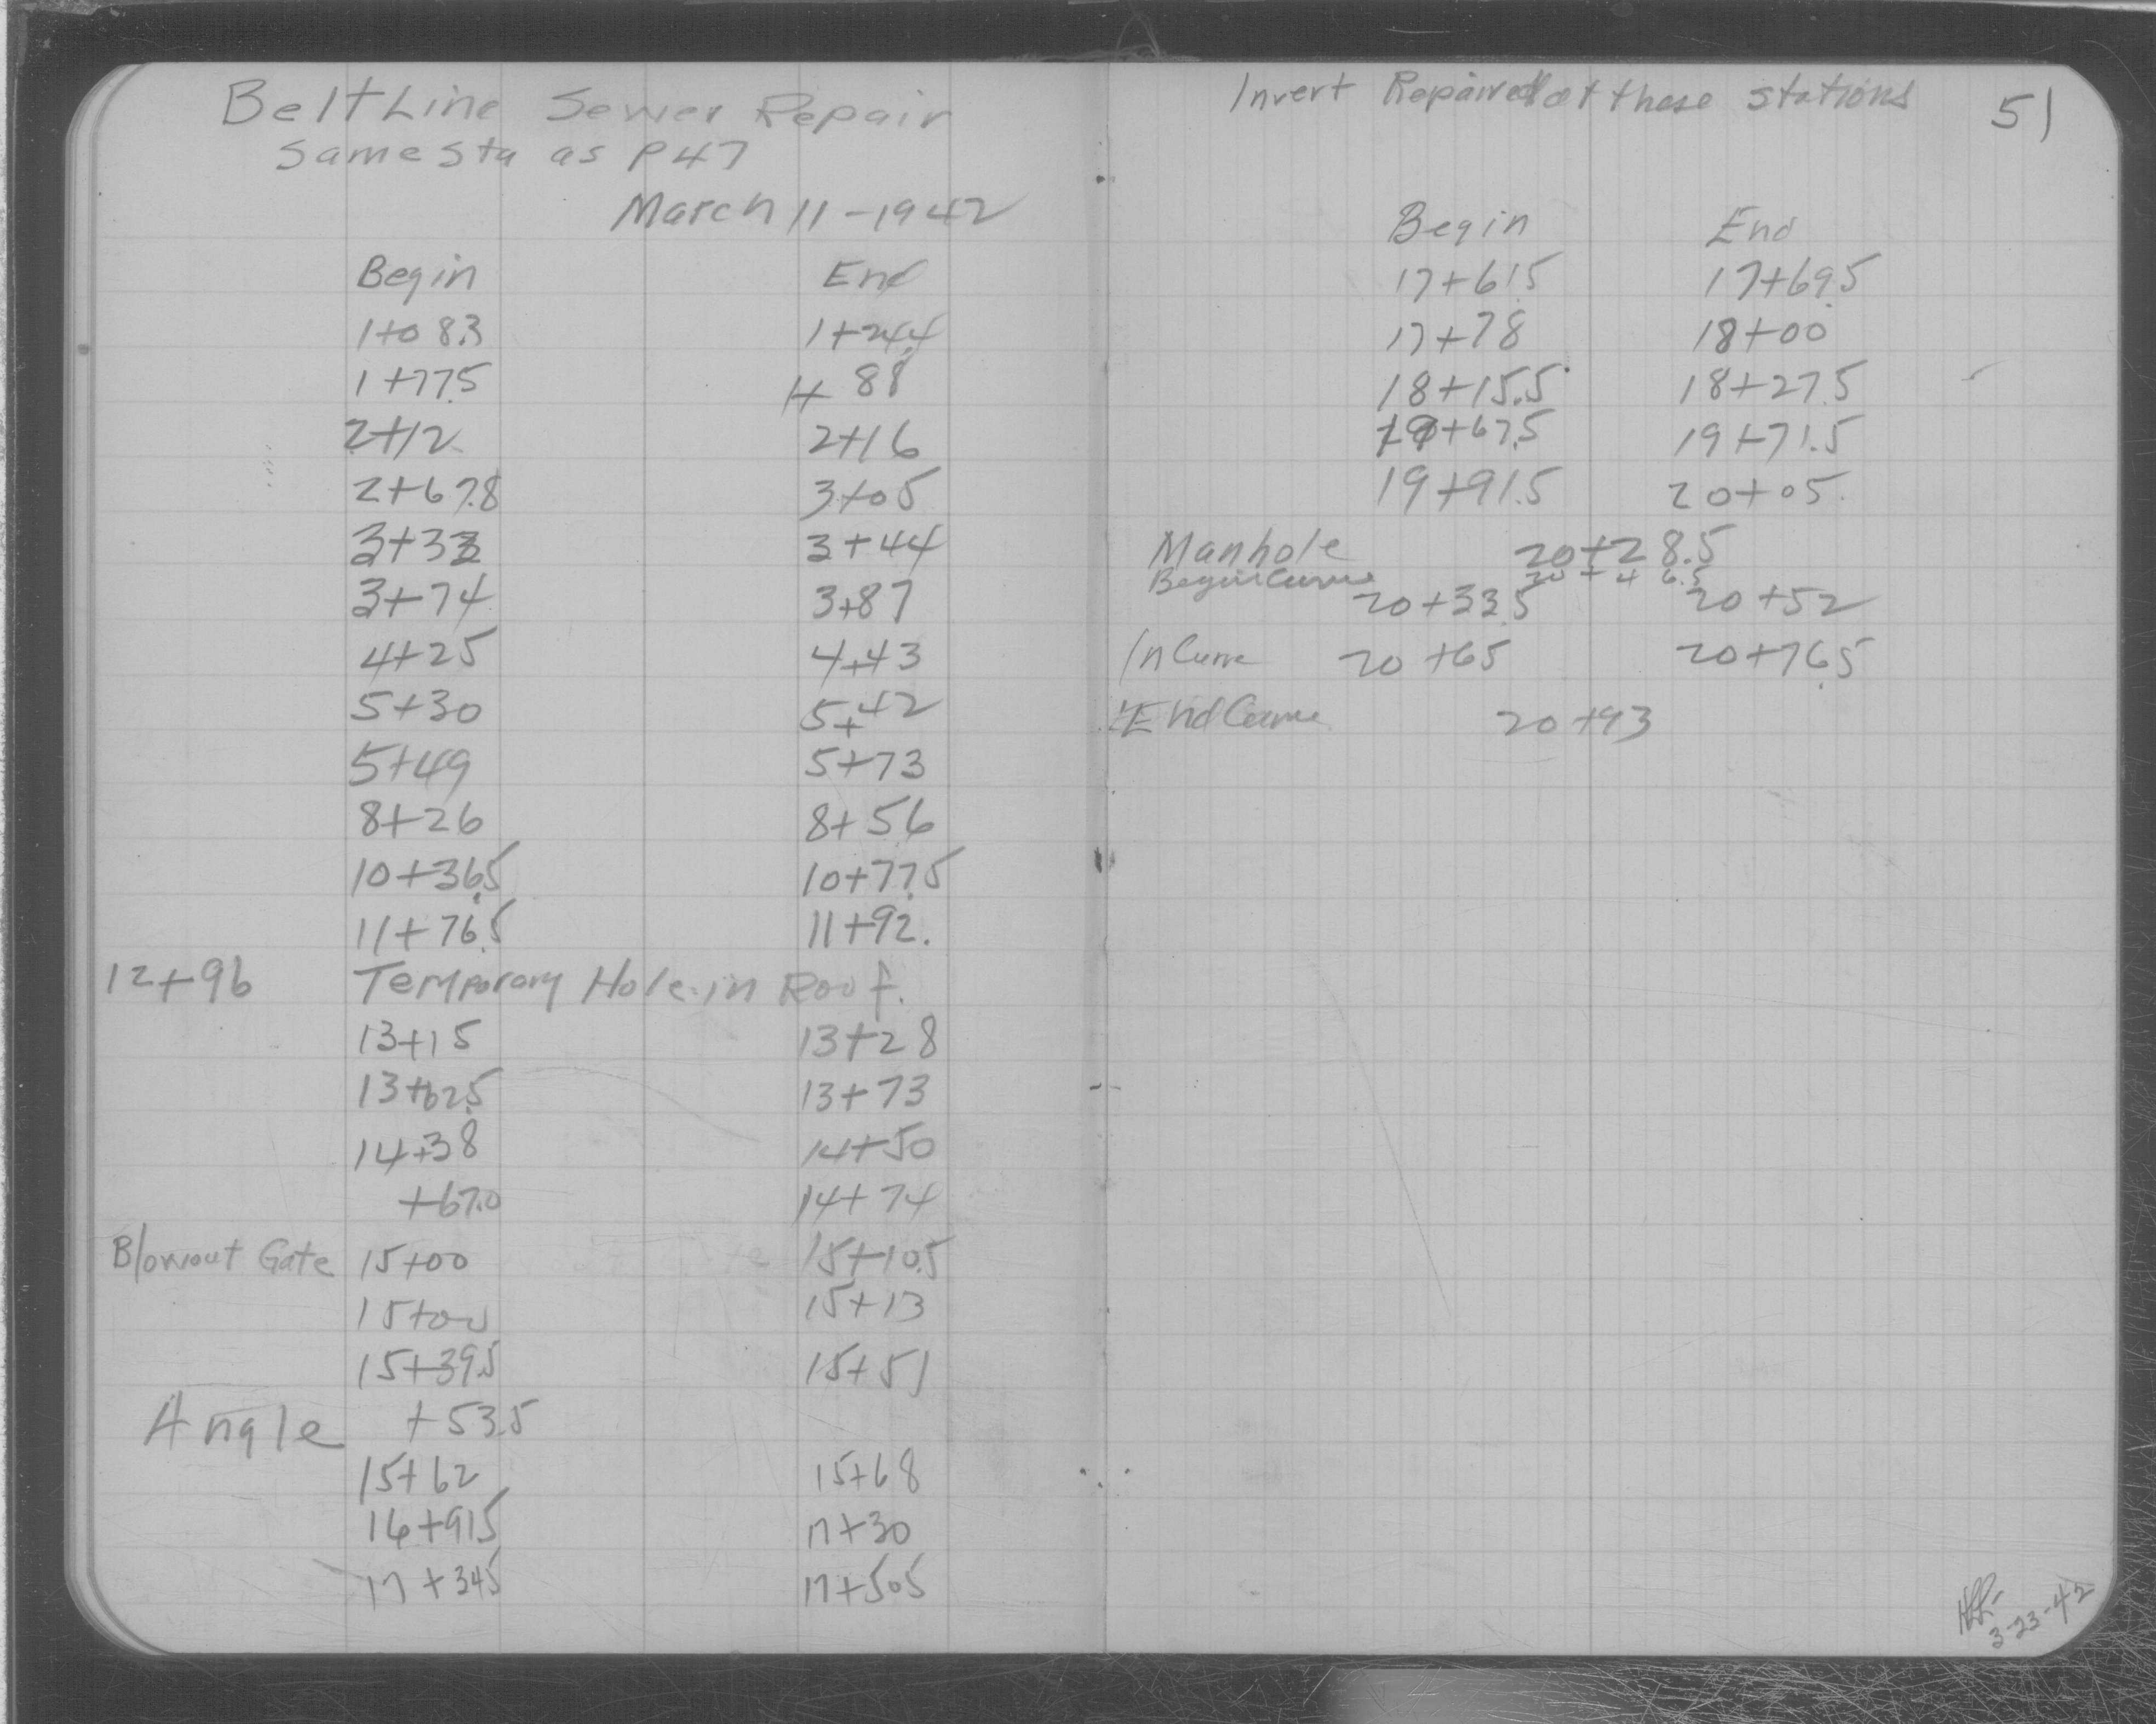 BeltLine Sewer Repair
Same Sta as P47
March 11-1942
Begin End
1+08.3 1+24.4
1+77.5 1+88
2+12 2+16
2+67.8 3+05
3+33 3+44
3+74 3+87
4+25 4+43
5+30 5+42
5+49 5+73
8+26 8+56
10+36.5 10+77.5
11+76.5 11+92.
12+96 Temporary Hole in Roof.
13+15 13+28
13+62.5 13+73
14+38 14+50
+67.0 14+74
Blowout Gate 15+00 15+10.5
15+00 15+13
15+39.5 15+51
Angle +53.5
15+62 15+68
16+91.5 17+30
17+34.5 17+50.5
Invert Repaired at these stations 51
Begin End
17+61.5 17+69.5
17+78 18+00
18+15.5 18+27.5
19+67.5 19+71.5
19+91.5 20+05.
Manhole 20+28.5
Begin Curve 20+46.5
20+33.5 20+52
In Curve 20+65 20+76.5
End Curve 20+93
3-23-42